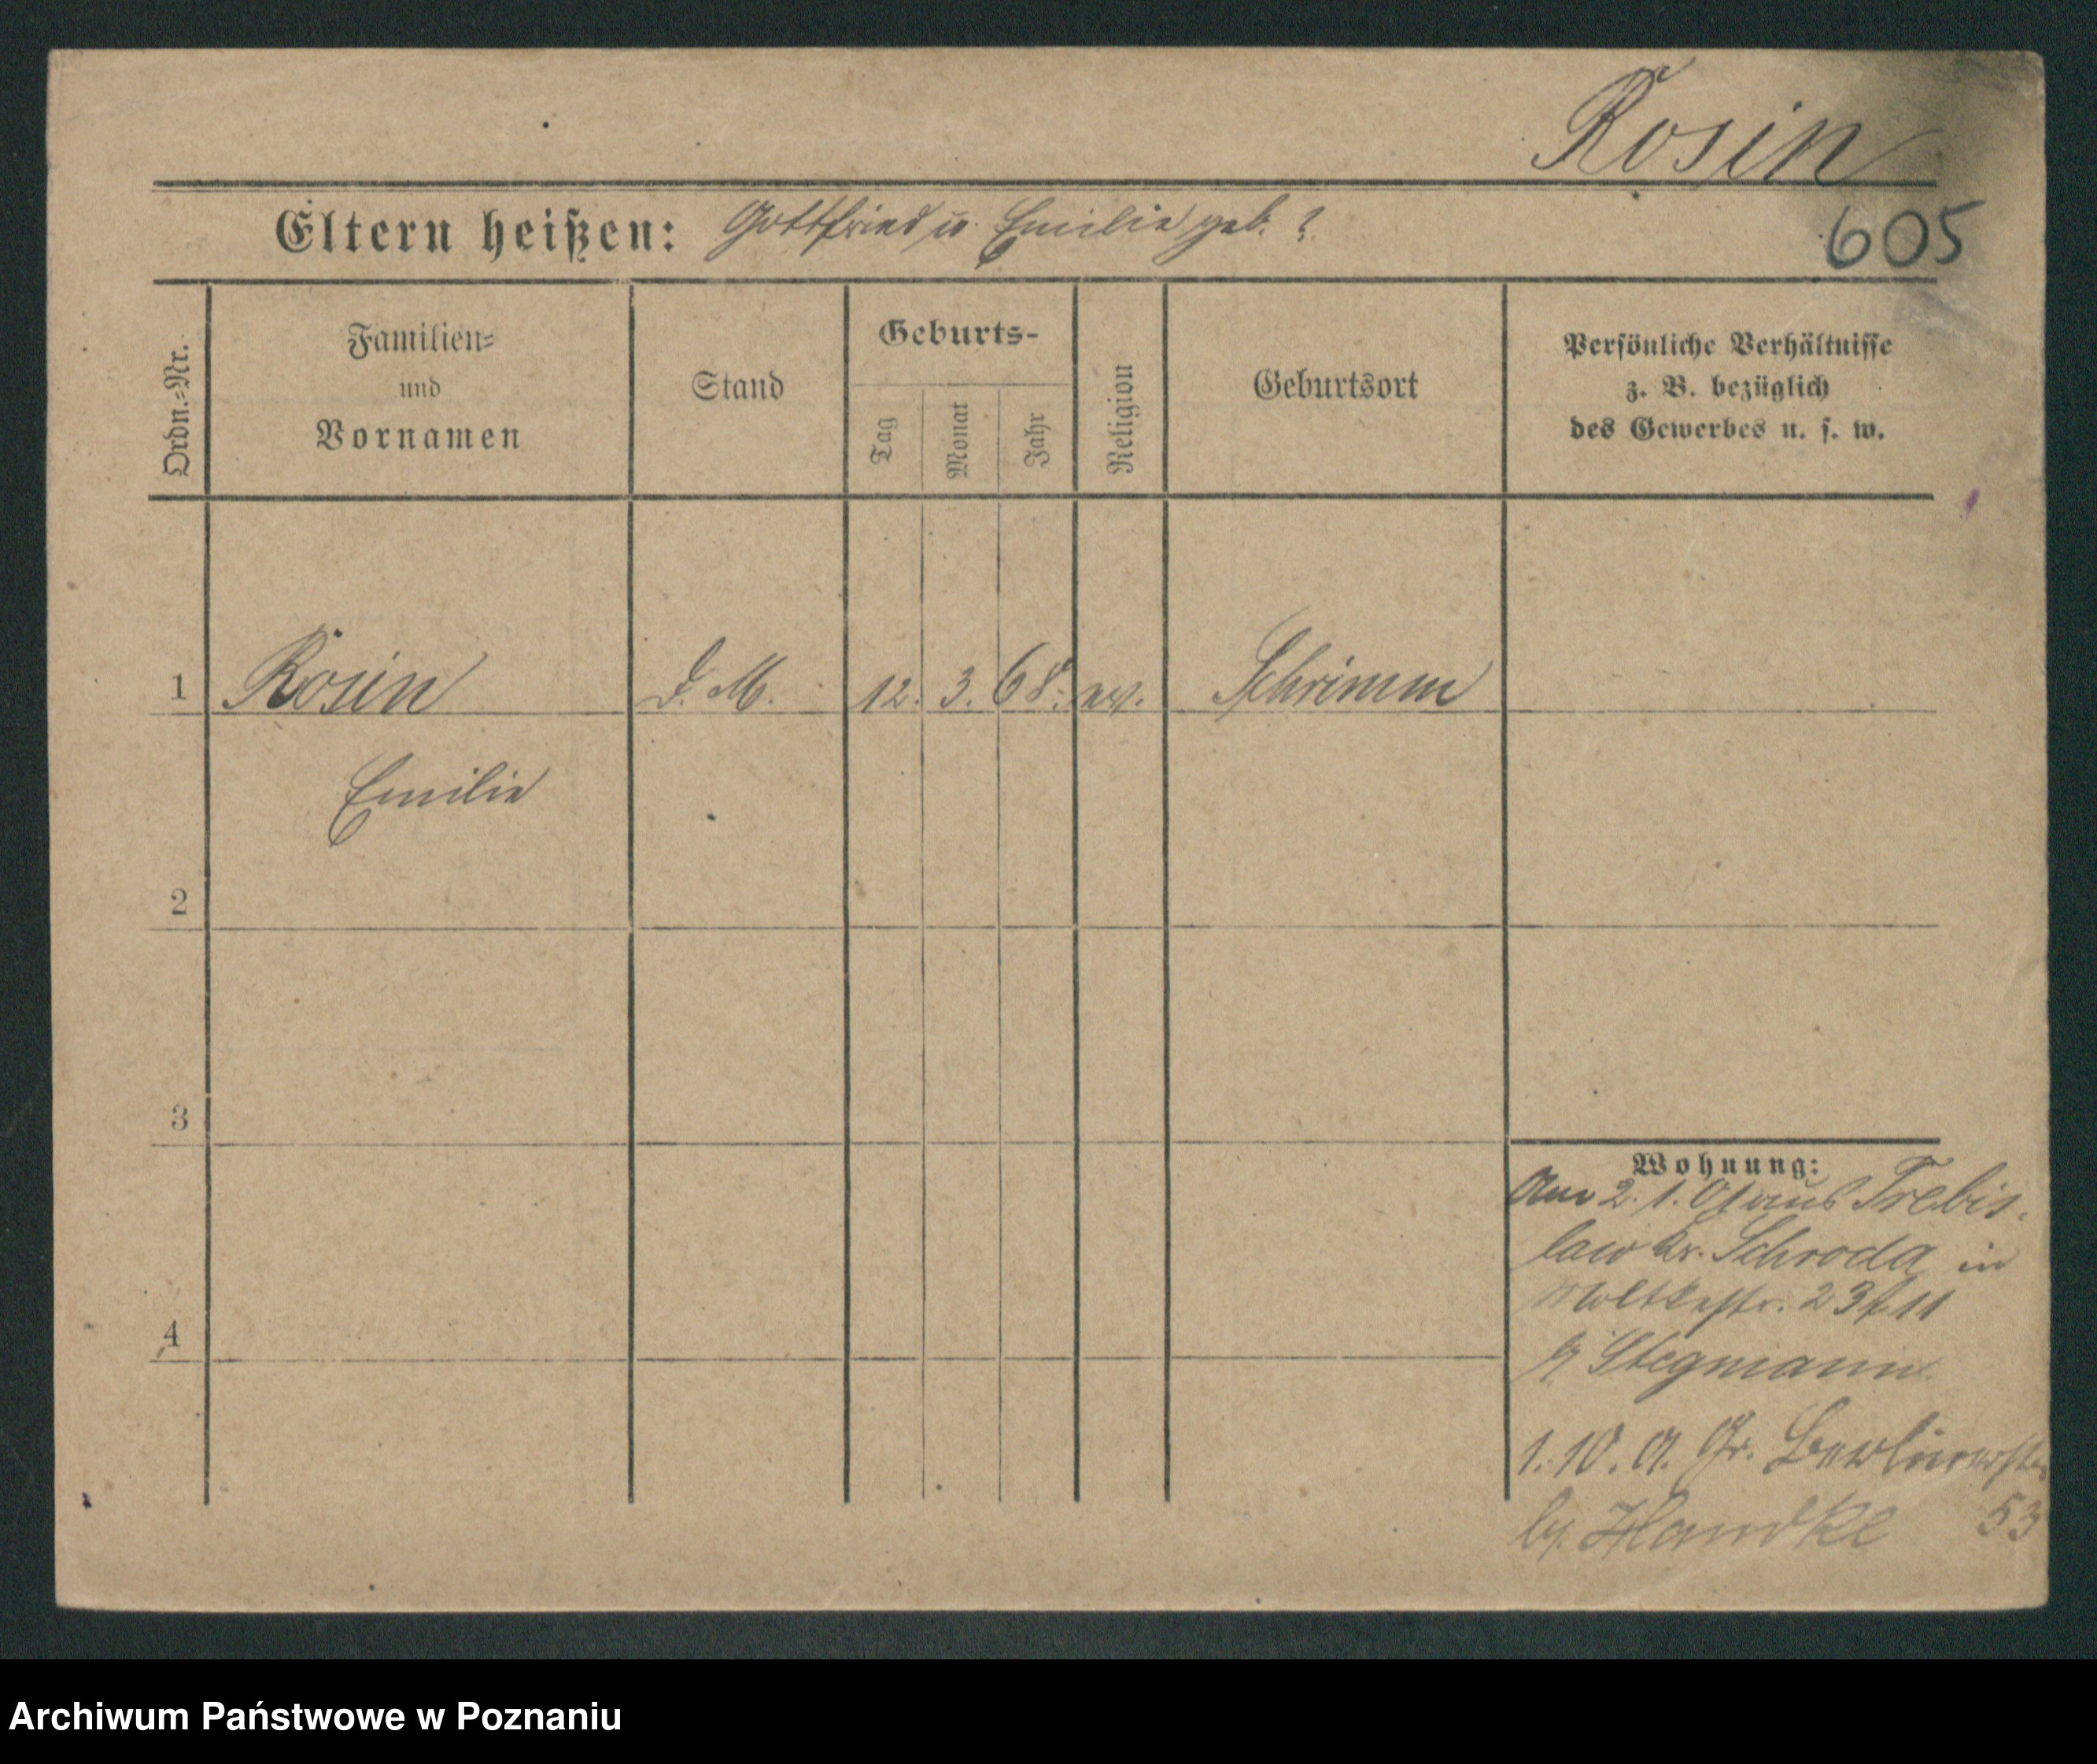 Rosin
605
Eltern heißen: Gottfried u. Emilie geb. ?
Ordn.=Nr.
Familien=
und
Vornamen
Stand
Geburts-
Tag
Monat
Jahr
Religion
Geburtsort
Persönliche Verhältnisse
z. B. bezüglich
des Gewerbes u. s. w.
1 Rosin D. M. 12. 3. 68. ev. Schrimm
Emilie
2
3
4
Wohnung:
Am 2. 1. 01 aus Trebis-
law Kr. Schroda in
Moltkestr. 23 11
Stegmann
1. 10. 01. Gr. Berlinerstr.
by. Handke 53
Archiwum Państwowe w Poznaniu